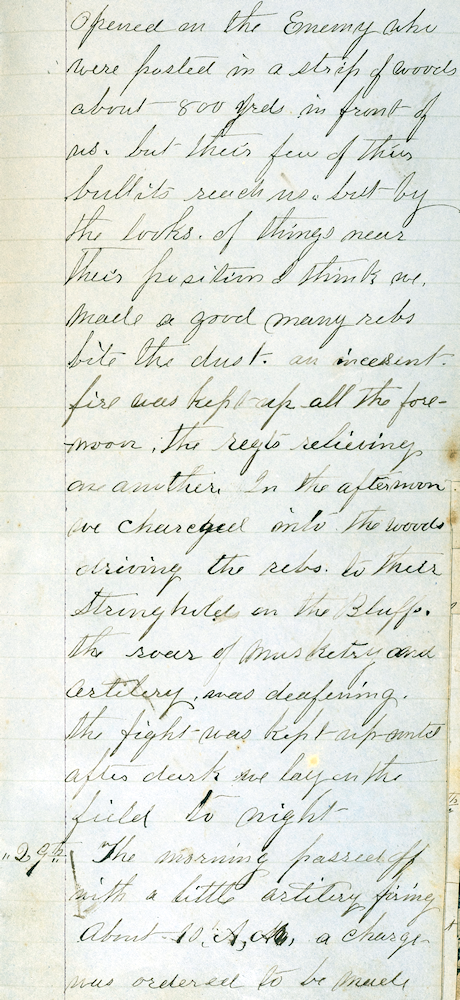 opened on the Enemy who
were posted in a strip of woods
about 800 yrds in front of
us. but their few of their
bullits reach us. but by
the looks. of things near
their position I think we.
made a good many rebs
bite the dust. an incesent
fire was kept up all the fore-
noon, the regts relieving
one another. In the afternoon
we charged into the woods
driving the rebs. to their
Stronghold on the Bluffs.
the roar of musketry and
artilery, was deafening.
the fight was kept up until
after dark we lay on the
field to night
"29th" The morning passed off
with a little artilery firing
About 10, A, M, a charge
was ordered to be made